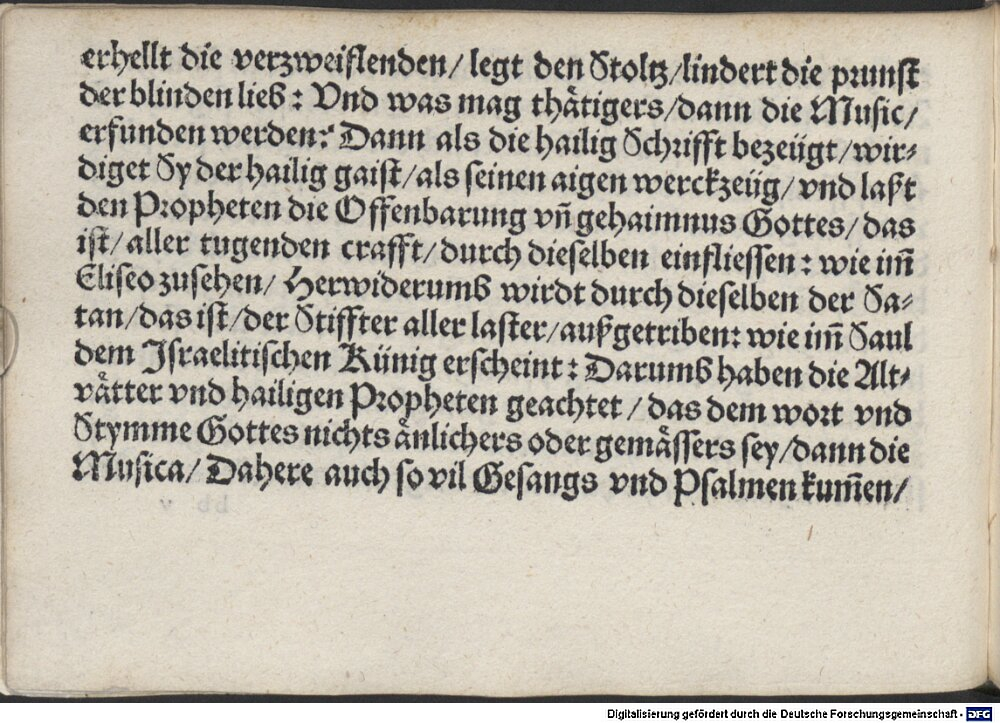 erhellt die verzweiflenden/ legt den Stoltz/lindert die prunst
der blinden lieb: Vnd was mag thätigers/dann die Music/
erfunden werden? Dann als die hailig Schrifft bezeügt/wir⸗
diget Sy der hailig gaist/als seinen aigen werckzeüg/ vnd laßt
den Propheten die Offenbarung vñ gehaimnus Gottes/ das
ist/ aller tugenden crafft/durch dieselben einfliessen: wie im̃
Eliseo zusehen/ Herwiderumb wirdt durch dieselben der Sa⸗
tan/das ist/der Stiffter aller laster/außgetriben: wie im̃ Saul
dem Israelitischen Künig erscheint: Darumb haben die Alt⸗
vätter vnd hailigen Propheten geachtet / das dem wort vnd
Stymme Gottes nichts änlichers oder gemässers sey/dann die
Musica/ Dahere auch so vil Gesangs vnd Psalmen kum̃en/
Digitalisierung gefördert durch die Deutsche Forschungsgemeinschaft - DFG